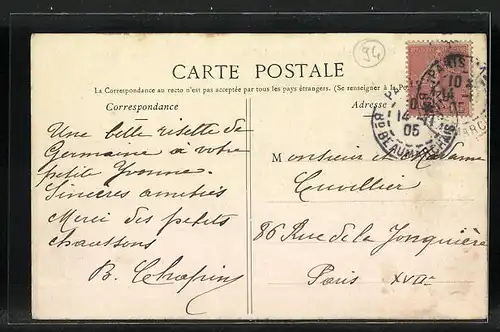 94
CARTE POSTALE
La Correspondance au recto n'est pas acceptée par tous les pays étrangers. (Se renseigner à la
Correspondance
Adresse
Une belle risette de
Germaine à votre
petit Yvonne.
Sincères amitiés
Merci des petits
chaussons
B. Chapin
Monsieur et Madame
Cuvillier
86 Rue de la Jonquière
Paris XVIIe
PARIS
10
05
14 - 11
05
Bd BEAUMARCHAIS